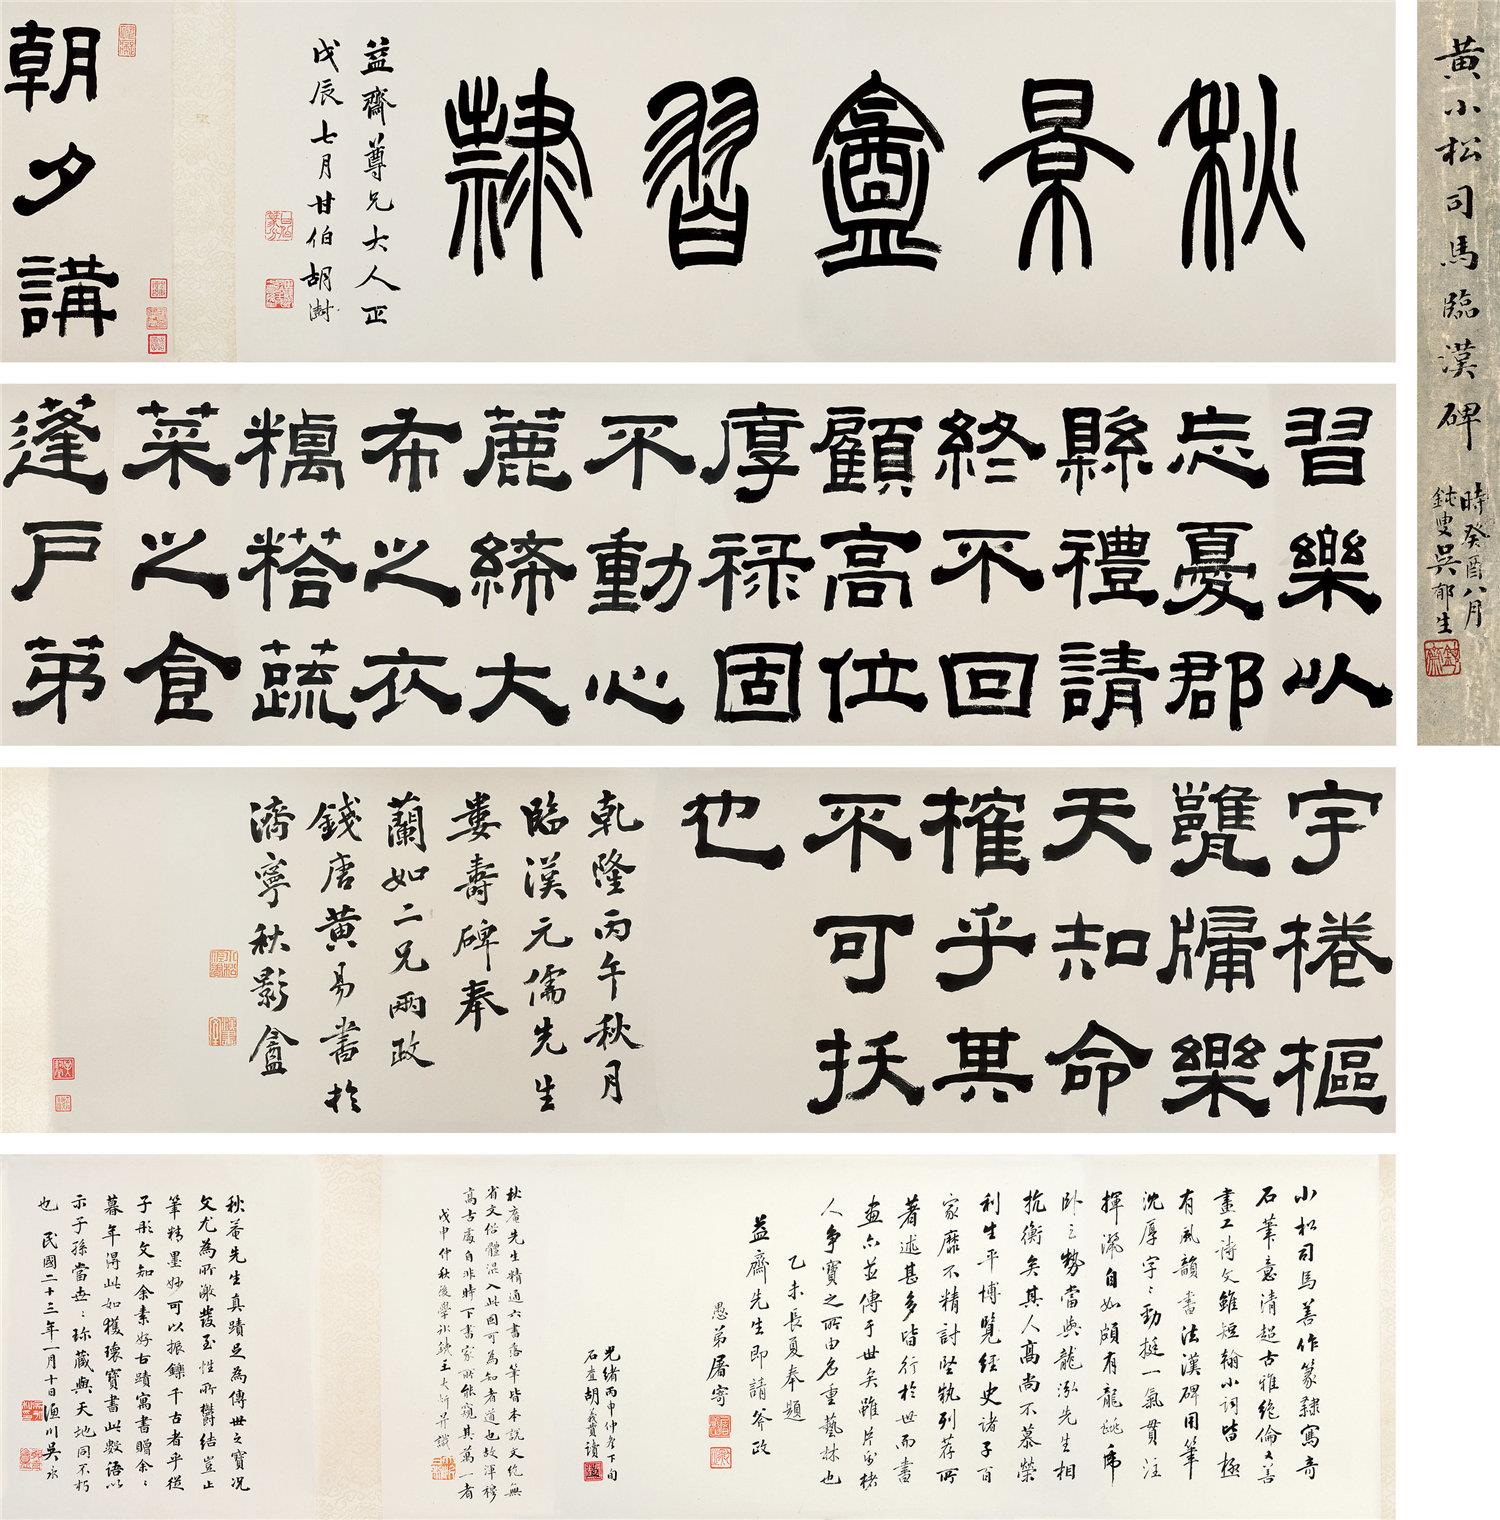 黃小松司馬臨漢碑
時癸酉八月
鈍叟吳郁生
秋景盦習隸
益齋尊兄大人正
戊辰七月甘伯胡澍
朝夕講
習樂以
忘憂郡
縣禮請
終不回
顧高位
厚祿固
不動心
麁絺大
布之衣
糲荅蔬
菜之食
蓬戶茀
宇棬樞
甕牖樂
天知命
榷乎其
不可拔
也
乾隆丙午秋月
臨漢元儒先生
婁壽碑奉
蘭如二兄兩政
錢唐黃易書於
濟寧秋影盦
小松司馬善作篆隸寫奇
石筆意清超古雅絕倫又善
畫工詩文雖短翰小詞皆極
有風韻書法漢碑用筆
沈厚字字勁挺一氣貫注
揮灑自如頗有龍跳虎
臥之勢當與龍泓先生相
抗衡矣其人高尚不慕榮
利生平博覽經史諸子百
家靡不精討堅執列荐所
著述甚多皆行於世而書
畫亦並傳于世矣雖片函楮
人爭寶之所由名重藝林也
乙未長夏奉題
益齋先生即請斧政
愚弟屠寄
光緒丙申仲冬下旬
石查胡義贊讀
秋庵先生精通六書落筆皆本說文絕無
省文俗體混入此固可為知者道也故渾穆
高古處自非時下書家所能窺其萬一者
戊申仲秋後學冰鐵王大炘并識
秋菴先生真蹟足為傳世之寶況
文尤為所激發至性所鬱結豈止
筆精墨妙可以振鑠千古者乎從
子彤文知余素好古蹟寓書贈余余
暮年得此如獲瓌寶書此數語以
示子孫當世世珍藏與天地同不朽
也 民國二十三年一月十日漁川吳永